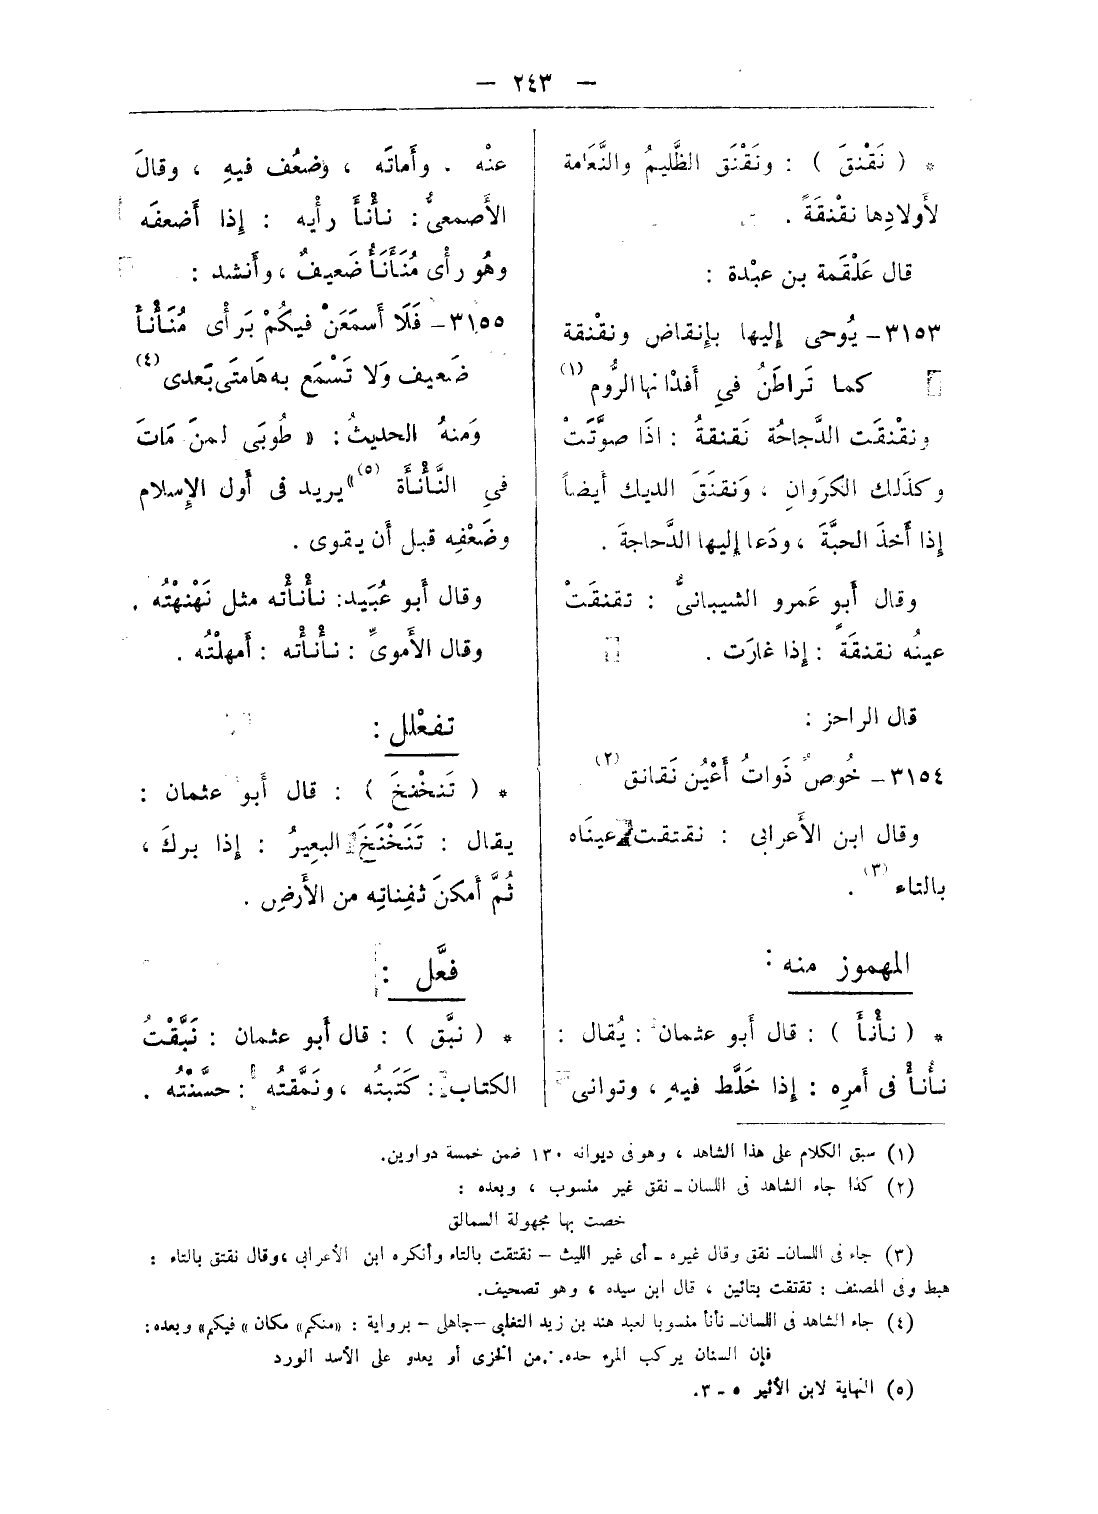 — ٢٤٣ —
* ( نَقْنقَ ) : ونَقْنَق الظَّليمُ والنَّعَامة
لأَولادِها نقْنقَةً .
قال عَلْقَمة بن عبْدة :
٣١٥٣ـ يُوحى إليها بإنقاض ونقْنقة
كما تَراطَنُ في أَفدْانها الرُّوم (١)
ونقْنقَت الدَّجاجُة نَقنقةُ : اذَا صوَّتَتْ
وكذَلك الكرَوانِ ، وَنقنَقَ الديك أيضاً
إذا أَخذَ الحبَّةَ ، ودَعا إليها الدَّجاجةَ .
وقال أَبو عَمرو الشيبانىُّ : تقنقَتْ
عينُه نقنقَةً : إذا غارَت .
قال الراجز :
٣١٥٤ـ خُوصٌ ذَواتُ أَعْيُن نَقانق (٢)
وقال ابن الأَعرابى : نقتقت عينَاه
بالتاء (٣) .
المهموز منه :
* ( نأْنأَ ) : قال أَبو عثمان : يُقال :
نأْنأَ فى أمرِه : إذا خَلَّط فيهِ ، وتوانى
عنْه . وأَماتَه ، وضعُف فيهِ ، وقالَ
الأَصمعىُّ : نأْنأَ رأيه : إذا أَضعفَه
وهُو رأى مُنَأْنَأُ ضَعيفٌ ، وأنشد :
٣١٥٥ـ فَلَا أَسمَعَنْ فيكُمْ بَرأى مُنَأْنأ
ضَعيف وَلا تَسْمَع به هَامتَى بَعدى (٤)
وَمنهُ الحديثُ : « طُوبَى لمنَ مَاتَ
في النَّأْنأَة (٥) » يريد فى أول الإسلام
وضَعْفِه قبل أن يقوى .
وقال أبو عُبَيد: نأْنأْته مثل نَهْنهْتُه .
وقال الأَموىِّ : نأْنأْته : أَمهلْتُه .
تفعْلل :
* ( تَنخْنخَ ) : قال أَبو عثمان :
يقال : تَنَخْنَخَ البعِيرُ : إذا بركَ ،
ثُمَّ أَمكنَ ثفِناتِه من الأَرضِ .
فعَّل :
* ( نبَّق ) : قال أَبو عثمان : نَبَّقْتُ
الكتاب : كَتَبتُه ، ونَمَّقتُه : حسَّنْتُه .
(١) سبق الكلام على هذا الشاهد ، وهو فى ديوانه ١٣٠ ضمن خمسة دواوين.
(٢) كذا جاء الشاهد فى اللسان ـ نقق غير منسوب ، وبعده :
خصت بها مجهولة السمالق
(٣) جاء فى اللسان ـ نقق وقال غيره ـ أى غير الليث – نقتقت بالتاء وأنكره ابن الأعرابى ، وقال نقتق بالتاء :
هبط وفى المصنف : تقتقت بتائين ، قال ابن سيده ، وهو تصحيف.
(٤) جاء الشاهد فى اللسان ـ نأنأ منسوبا لعبد هند بن زيد التغلبى – جاهلى – برواية : «منكم» مكان «فيكم» وبعده:
فإن السنان يركب المرء حده.·.من الخزى أو يعدو على الأسد الورد
(٥) النهاية لابن الأثير ٥ ـ ٣.